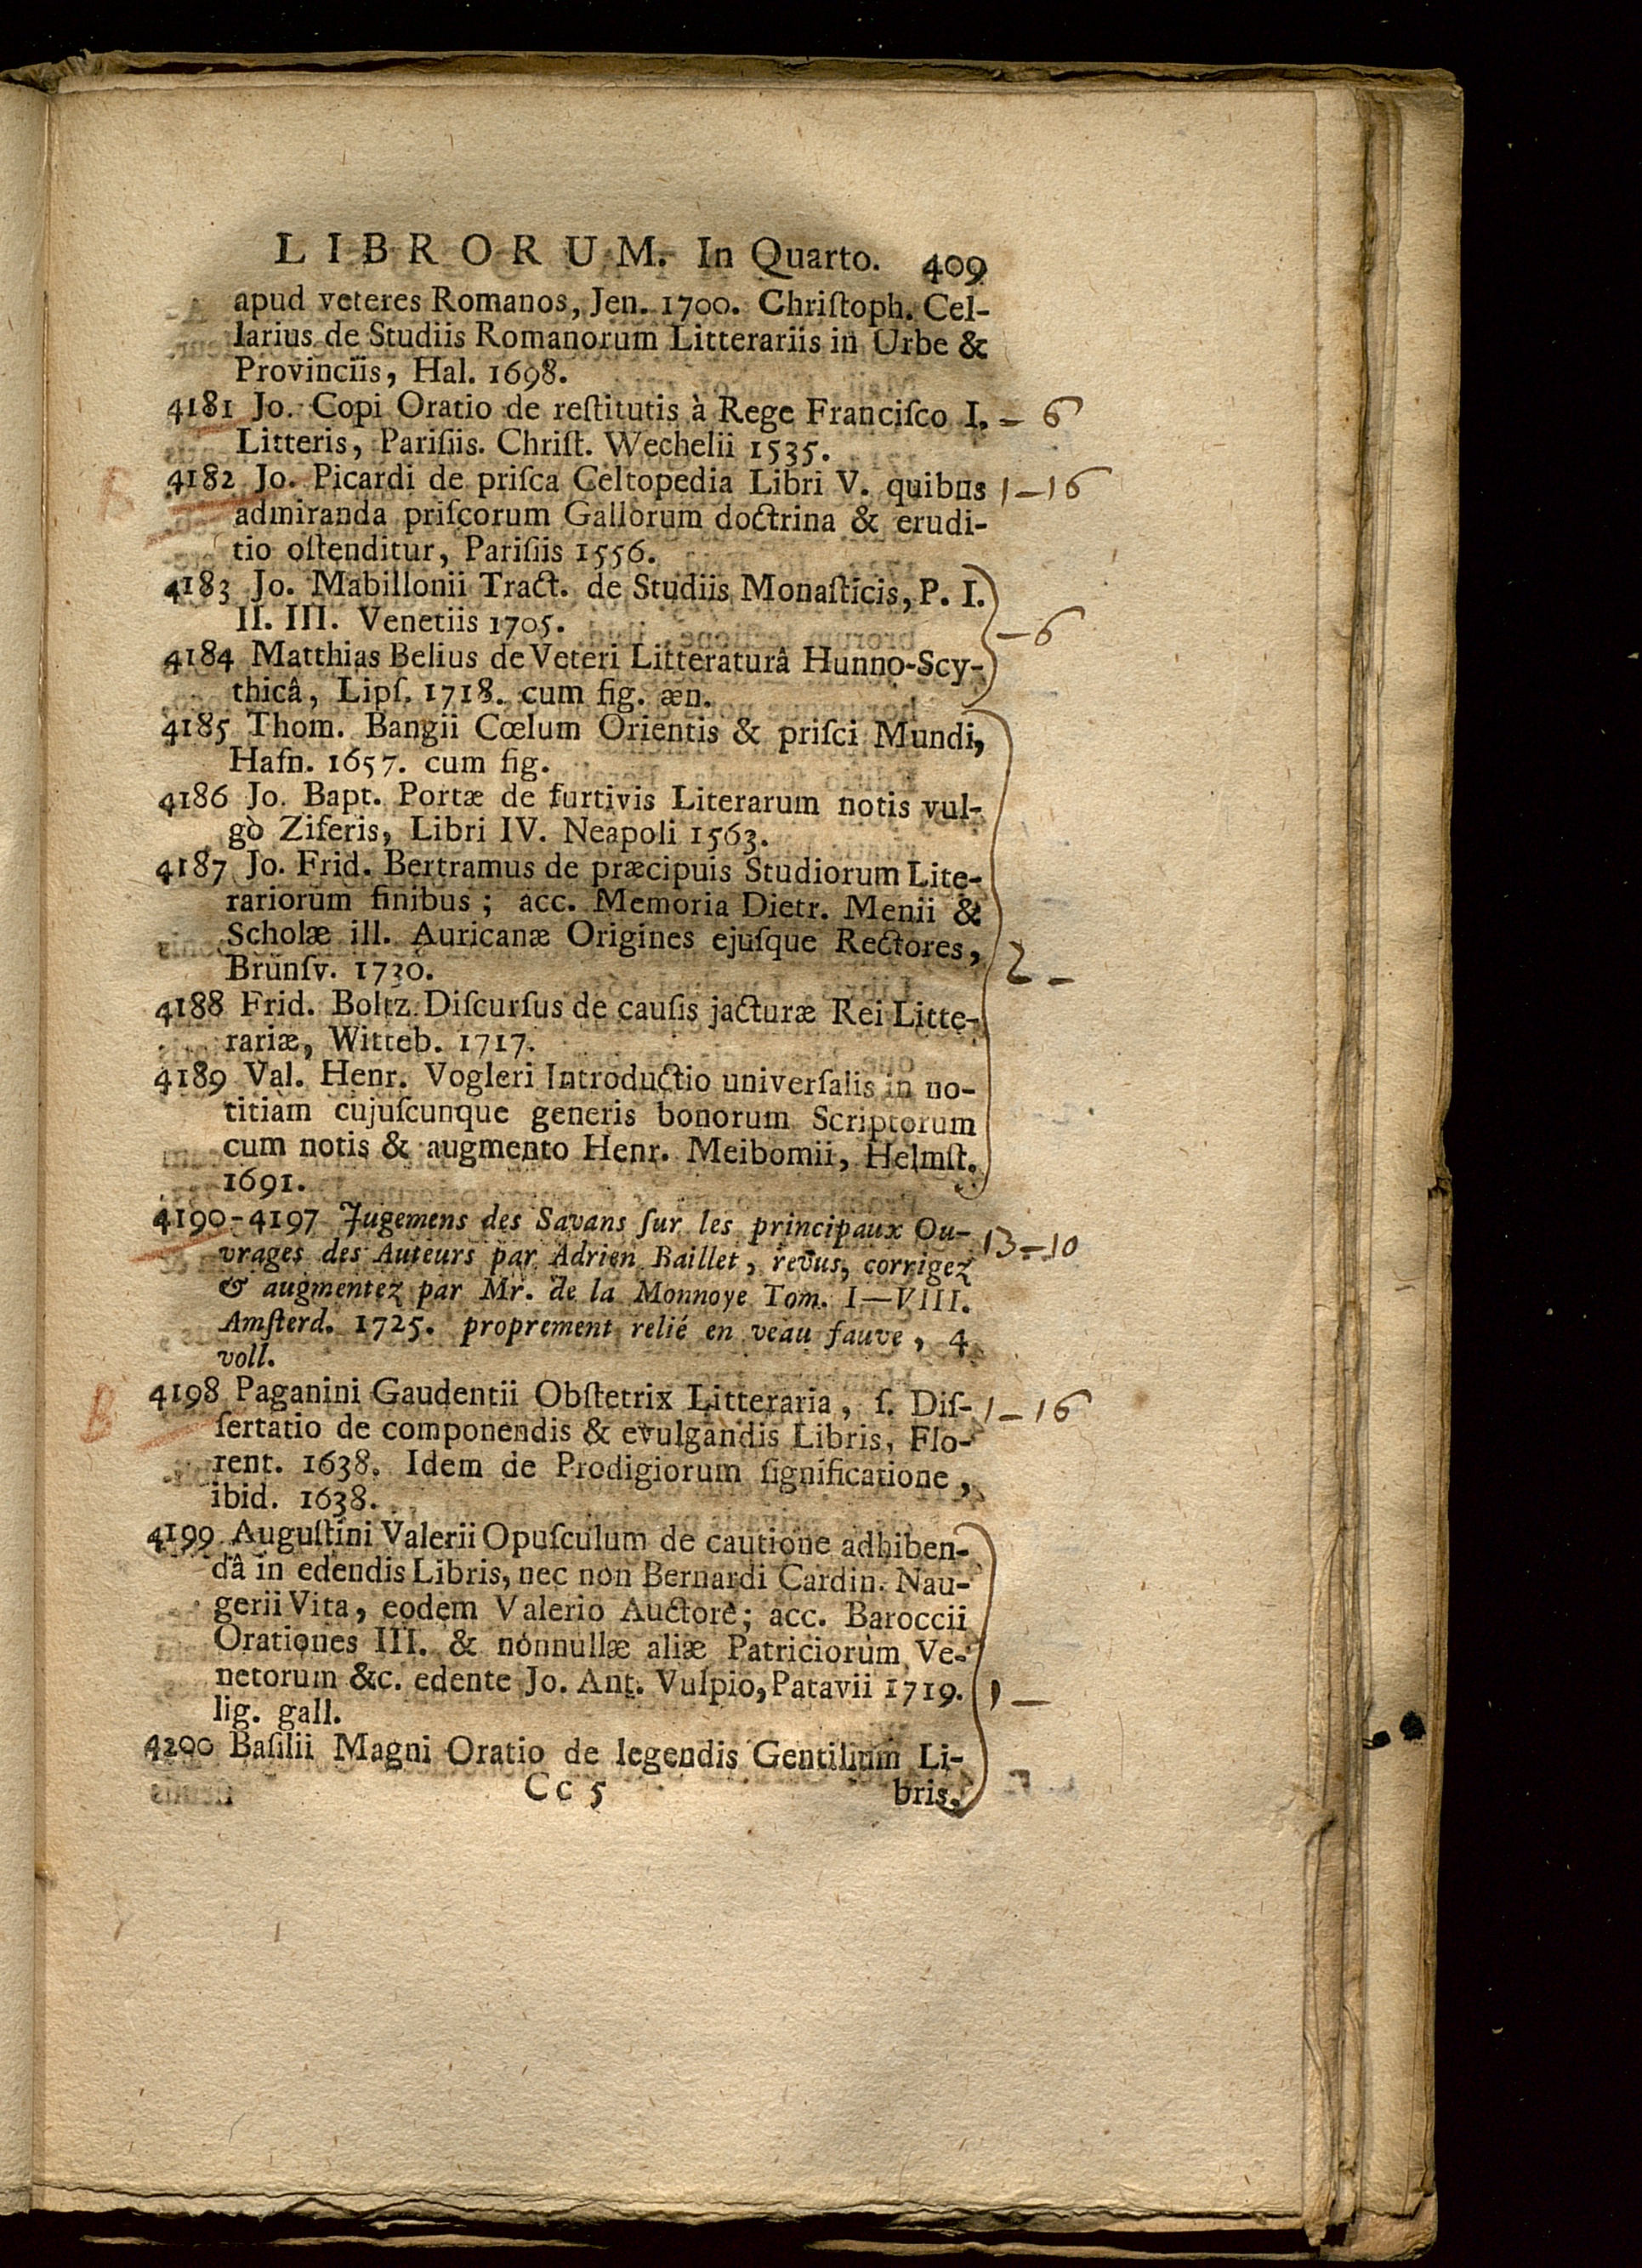 LIBRORUM. In Quarto. 409
apud veteres Romanos, Jen. 1700. Chriſtoph. Cel-
larius de Studiis Romanorum Litterariis in Urbe &
Provinciis, Hal. 1698.
4181 Jo. Copi Oratio de reſtitutis à Rege Franciſco I. - 6
Litteris, Pariſiis. Chriſt. Wechelii 1535.
B 4182 Jo. Picardi de priſca Celtopedia Libri V. quibus 1-16
admiranda priſcorum Gallorum doctrina & erudi-
tio oſtenditur, Pariſiis 1556.
4183 Jo. Mabillonii Tract. de Studiis Monaſticis, P. I.
II. III. Venetiis 1705. - 6
4184 Matthias Belius de Veteri Litteraturâ Hunno-Scy-
thicâ, Lipſ. 1718. cum fig. æn.
4185 Thom. Bangii Cœlum Orientis & priſci Mundi,
Hafn. 1657. cum fig.
4186 Jo. Bapt. Portæ de furtivis Literarum notis vul-
gò Ziferis, Libri IV. Neapoli 1563.
4187 Jo. Frid. Bertramus de præcipuis Studiorum Lite-
rariorum finibus; acc. Memoria Dietr. Menii &
Scholæ ill. Auricanæ Origines ejuſque Rectores,
Brunſv. 1730. 2 -
4188 Frid. Boltz Diſcurſus de cauſis jacturæ Rei Litte-
rariæ, Witteb. 1717.
4189 Val. Henr. Vogleri Introductio univerſalis in no-
titiam cujuſcunque generis bonorum Scriptorum
cum notis & augmento Henr. Meibomii, Helmſt.
1691.
4190-4197 Jugemens des Savans ſur les principaux Ou- 13-10
vrages des Auteurs par Adrien Baillet, revus, corrigez
& augmentez par Mr. de la Monnoye Tom. I—VIII.
Amſterd. 1725. proprement relié en veau fauve, 4
voll.
B 4198 Paganini Gaudentii Obſtetrix Litteraria, ſ. Diſ- 1-16
ſertatio de componendis & evulgandis Libris, Flo-
rent. 1638. Idem de Prodigiorum ſignificatione,
ibid. 1638.
4199 Auguſtini Valerii Opuſculum de cautione adhiben-
dâ in edendis Libris, nec non Bernardi Cardin. Nau-
gerii Vita, eodem Valerio Auctore; acc. Baroccii
Orationes III. & nonnullæ aliæ Patriciorum Ve-
netorum &c. edente Jo. Ant. Vulpio, Patavii 1719. 1 -
lig. gall.
4200 Baſilii Magni Oratio de legendis Gentilium Li-
Cc 5 bris,